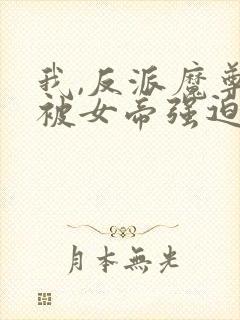 我,反派魔尊
被女帝强迫
月本無光